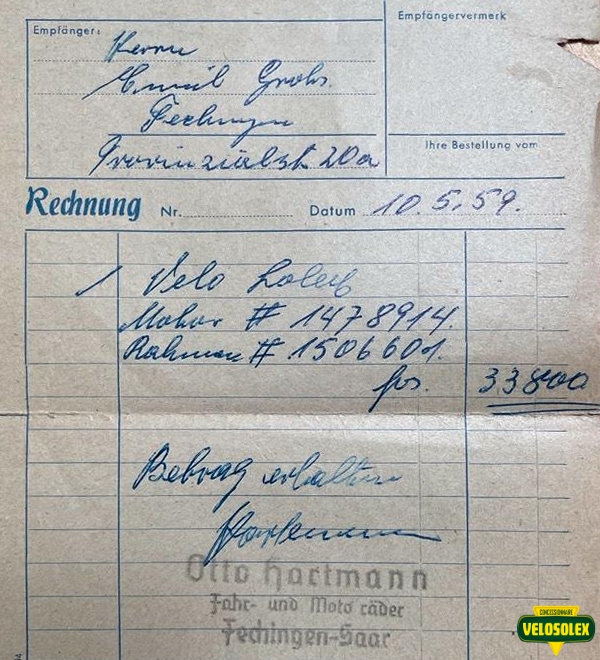 Empfängervermerk
Empfänger:
Herrn
Emil Grohs.
Fechingen
Provinzialst. 20a
Ihre Bestellung vom
Rechnung Nr. Datum 10.5.59.
1 Velo Solex
Motor # 1478914.
Rahmen # 1506601.
frs. 33800
Betrag erhalten
Hartmann
Otto Hartmann
Fahr- und Motoräder
Fechingen-Saar
CONCESSIONNAIRE
VELOSOLEX